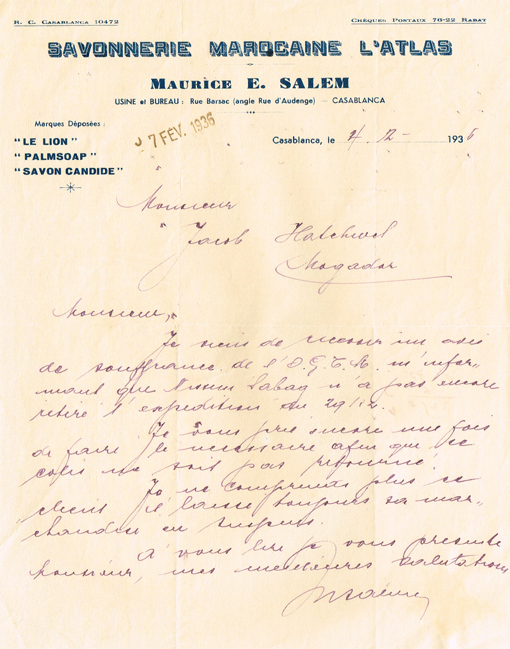 R. C. CASABLANCA 10472
CHÈQUES POSTAUX 76-22 RABAT
SAVONNERIE MAROCAINE L'ATLAS
MAURICE E. SALEM
USINE et BUREAU : Rue Barsac (angle Rue d'Audenge) — CASABLANCA
Marques Déposées :
"LE LION"
"PALMSOAP"
"SAVON CANDIDE"
7 FEV. 1936
Casablanca, le 193
Monsieur
Jacob Hatchwel
Mogador
Monsieur,
Je viens de recevoir un avis
de souffrance de l'O.G.T.R. m'infor-
mant que Nissim Sabag n'a pas encore
retiré l'expedition du 29/12.
Je vous prie encore une fois
de faire le necessaire afin que ce
colis ne soit pas retourné.
Je ne comprends plus ce
client il laisse toujours sa mar-
chandise en suspens.
A vous lire je vous presente
Monsieur, mes meilleures salutations